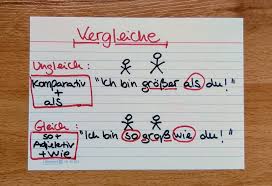 Vergleiche
Ungleich:
Komparativ
+
als
"Ich bin größer als du!"
Gleich:
so +
Adjektiv
+ wie
"Ich bin so groß wie du!"